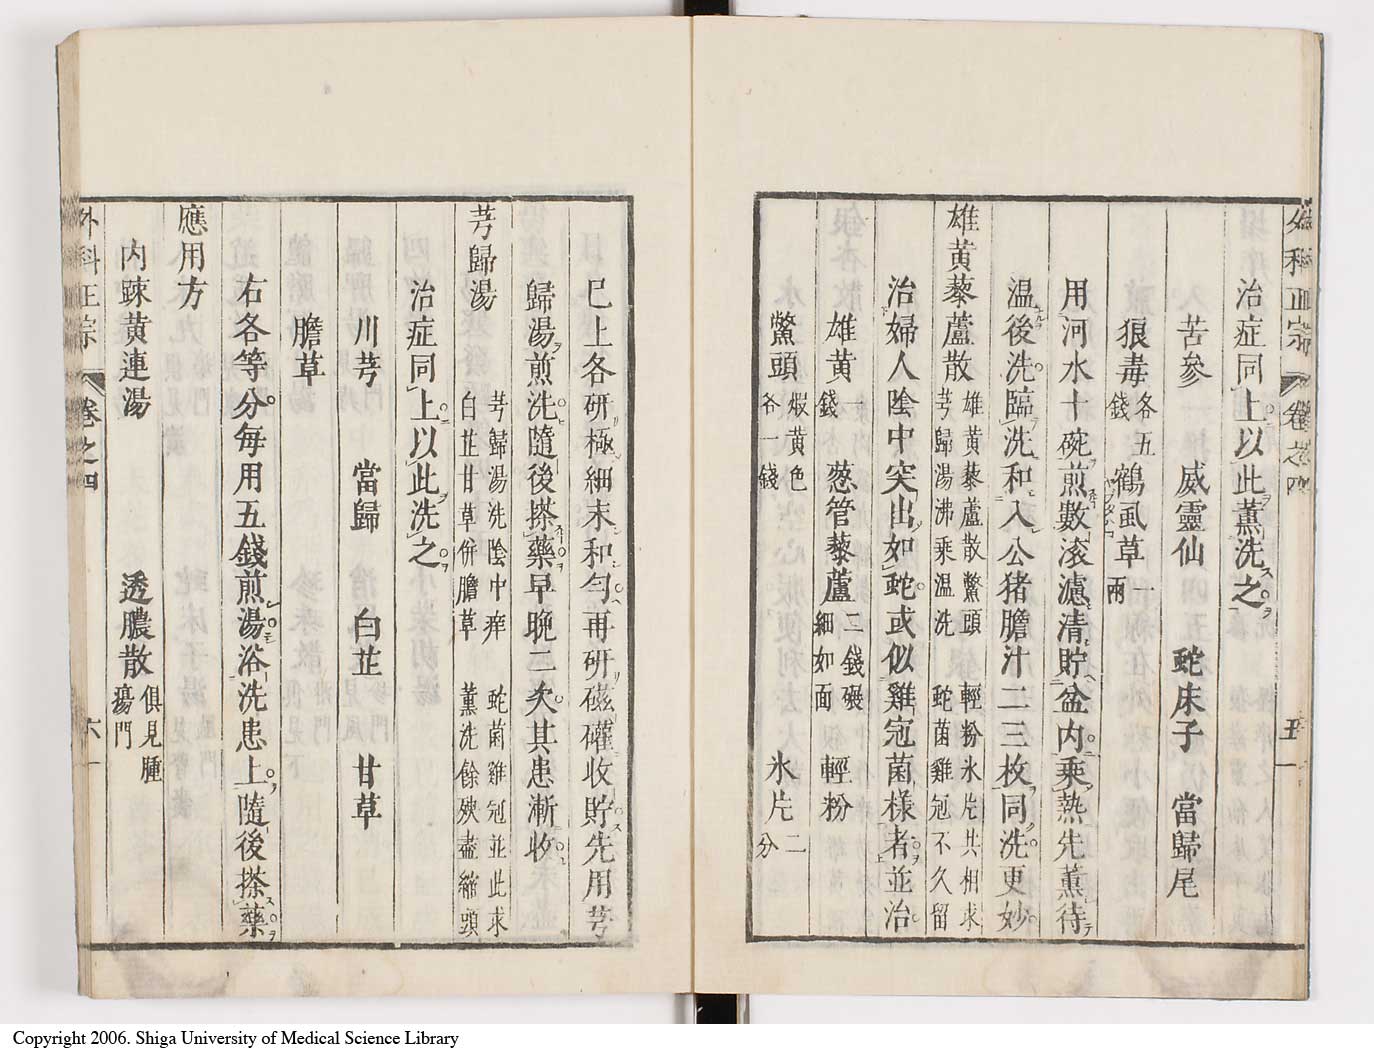 治症同上以此薰洗之
苦參 威靈仙 蛇床子 當歸尾
狼毒各五錢 鶴虱草一兩
用河水十碗煎數滚濾清貯盆内乘熱先薰待
温後洗臨洗和入公猪膽汁二三枚同洗更妙
雄黄藜蘆散 雄黄藜蘆散鱉頭 輕粉氷片共相求
芎歸湯沸乘温洗 蛇菌雞冠不久留
治婦人陰中突出如蛇或似雞冠菌様者並治
雄黄一錢 葱管藜蘆二錢碾細如面 輕粉
鱉頭煅黄色各一錢 氷片二分
外科正宗 卷之四 五一
已上各研極細末和勻再研磁礶收貯先用芎
歸湯煎洗隨後搽藥早晩二次其患漸收
芎歸湯 芎歸湯洗陰中痒 蛇菌雞冠並此求
白芷甘草併膽草 薰洗餘殃盡縮頭
治症同上以此洗之
川芎 當歸 白芷 甘草
膽草
右各等分每用五錢煎湯浴洗患上隨後搽藥
應用方
内踈黄連湯 透膿散俱見腫瘍門
外科正宗 卷之四 六一
Copyright 2006. Shiga University of Medical Science Library